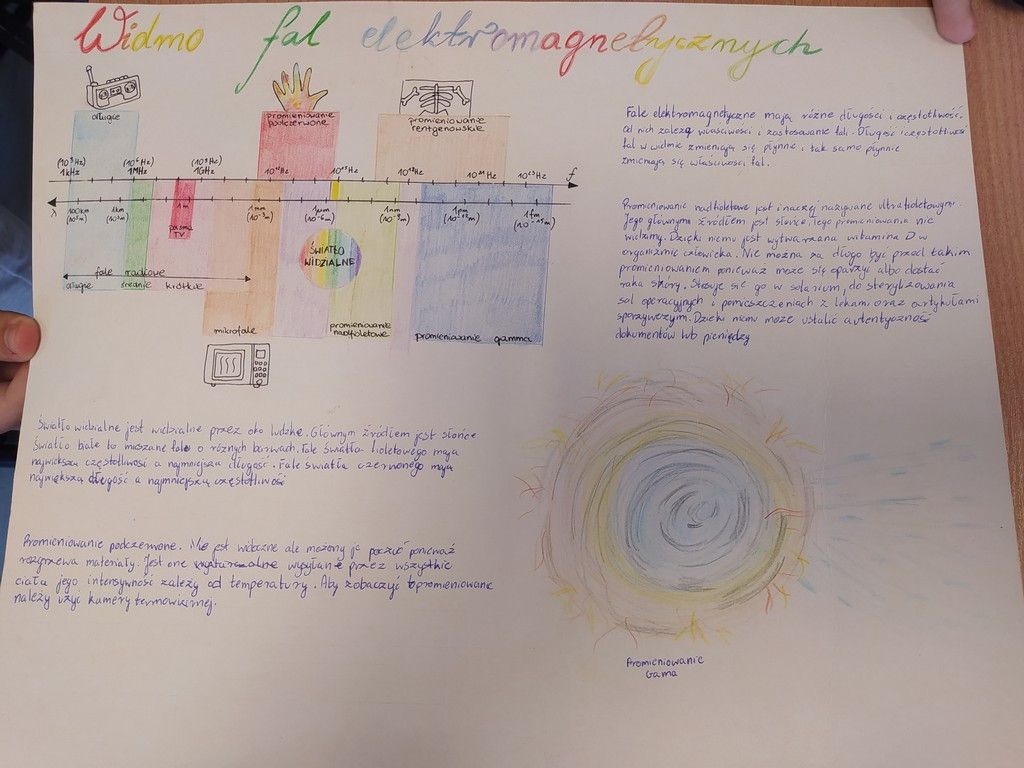 Widmo fal elektromagnetycznych
długie
promieniowanie
podczerwone
promieniowanie
rentgenowskie
(10³Hz)
1kHz
(10⁶Hz)
1MHz
(10⁹Hz)
1GHz
10¹²Hz
10¹⁵Hz
10¹⁸Hz
10²¹Hz
10²³Hz
f
λ
100km
(10⁵m)
1km
(10³m)
1m
1mm
(10⁻³m)
1μm
(10⁻⁶m)
1nm
(10⁻⁹m)
1pm
(10⁻¹²m)
1fm
(10⁻¹⁵m)
pasma
TV
ŚWIATŁO
WIDZIALNE
fale radiowe
długie średnie krótkie
mikrofale
promieniowanie
nadfioletowe
promieniowanie gamma
Fale elektromagnetyczne mają różne długości i częstotliwość.
Od nich zależą właściwości i zastosowanie fali. Długość i częstotliwość
fal w widmie zmieniają się płynnie i tak samo płynnie
zmieniają się właściwości fal.
Promieniowanie nadfioletowe jest inaczej nazywane ultrafioletowym.
Jego głównym źródłem jest słońce, jego promieniowania nie
widzimy. Dzięki niemu jest wytwarzana witamina D w
organizmie człowieka. Nie można za długo być przed takim
promieniowaniem ponieważ może się oparzyć albo dostać
raka skóry. Stosuje się go w solarium, do sterylizowania
sal operacyjnych i pomieszczeniach z lekami oraz artykułami
spożywczym. Dzięki niemu może ustalić autentyczność
dokumentów lub pieniędzy
Światło widzialne jest widzialne przez oko ludzkie. Głównym źródłem jest słońce
Światło białe to mieszane fale o różnych barwach. Fale światła fioletowego mają
największa częstotliwości a najmniejsza długość. Fale światła czerwonego mają
największa długość a najmniejszą częstotliwość
Promieniowanie podczerwone. Nie jest widoczne ale możony je poczuć ponieważ
rozgrzewa materiały. Jest one wysyłane przez wszystkie
ciała jego intensywność zależy od temperatury. Aby zobaczyć to promieniowanie
należy użyć kamery termowizirnej.
Promieniowanie
Gama